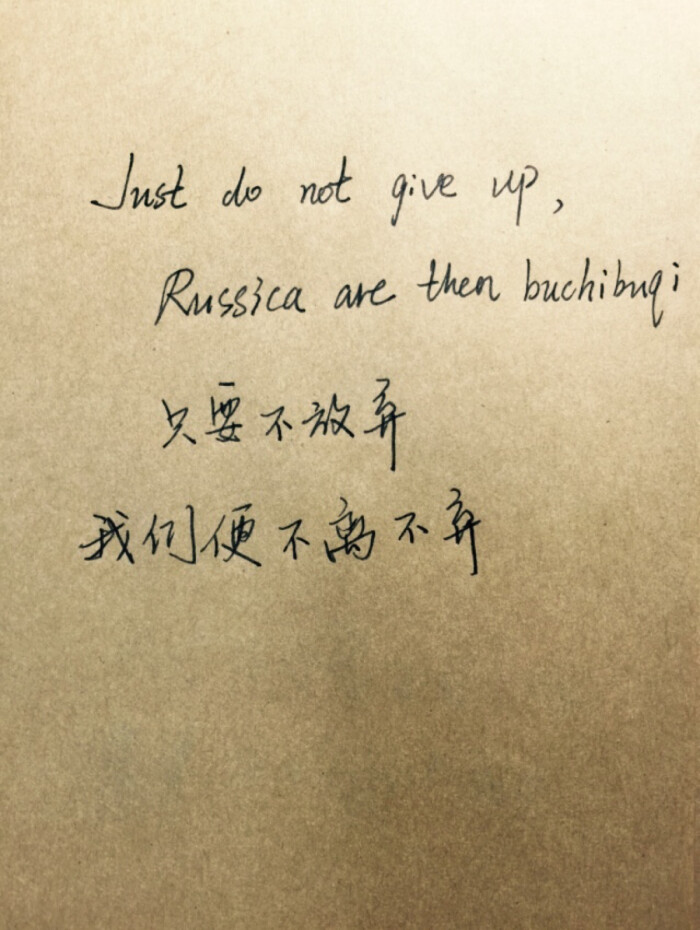 Just do not give up,
Russica are then buchibuqi
只要不放弃
我们便不离不弃